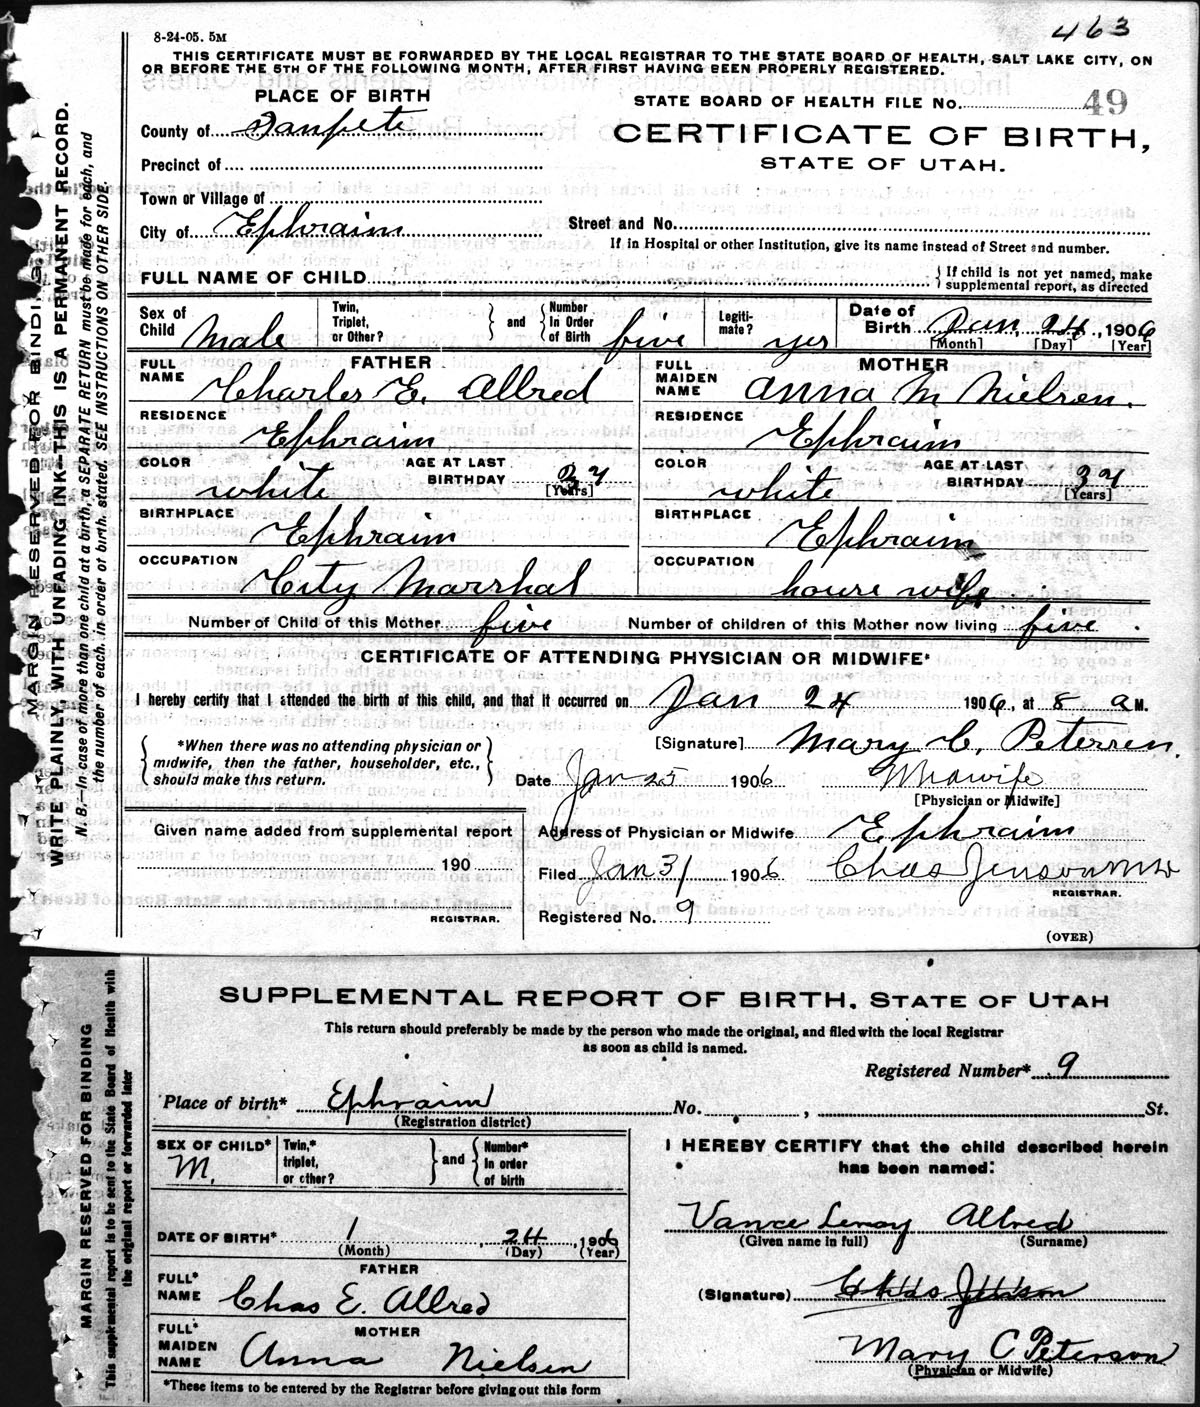 463
8-24-05. 5M
THIS CERTIFICATE MUST BE FORWARDED BY THE LOCAL REGISTRAR TO THE STATE BOARD OF HEALTH, SALT LAKE CITY, ON
OR BEFORE THE 5TH OF THE FOLLOWING MONTH, AFTER FIRST HAVING BEEN PROPERLY REGISTERED.
PLACE OF BIRTH
STATE BOARD OF HEALTH FILE No. 49
County of Sanpete
CERTIFICATE OF BIRTH,
STATE OF UTAH.
Precinct of
Town or Village of
City of Ephraim
Street and No.
If in Hospital or other Institution, give its name instead of Street and number.
FULL NAME OF CHILD
{ If child is not yet named, make
supplemental report, as directed
Sex of Child Male
Twin, Triplet, or Other?
and
Number In Order of Birth five
Legitimate? yes
Date of Birth Jan 24, 1906
[Month] [Day] [Year]
FATHER
FULL NAME Charles E. Allred
RESIDENCE Ephraim
COLOR white
AGE AT LAST BIRTHDAY 34
[Years]
BIRTHPLACE Ephraim
OCCUPATION City Marshal
MOTHER
FULL MAIDEN NAME Anna M Nielsen.
RESIDENCE Ephraim
COLOR white
AGE AT LAST BIRTHDAY 34
[Years]
BIRTHPLACE Ephraim
OCCUPATION house wife
Number of Child of this Mother five
Number of children of this Mother now living five.
CERTIFICATE OF ATTENDING PHYSICIAN OR MIDWIFE*
I hereby certify that I attended the birth of this child, and that it occurred on Jan 24 1906, at 8 a M.
{ *When there was no attending physician or
midwife, then the father, householder, etc.,
should make this return. }
[Signature] Mary C. Petersen.
Date Jan 25 1906 Midwife
[Physician or Midwife]
Given name added from supplemental report
190
REGISTRAR.
Address of Physician or Midwife Ephraim
Filed Jan 31 1906 Chas Jenson
REGISTRAR.
Registered No. 9
(OVER)
MARGIN RESERVED FOR BINDING
WRITE PLAINLY WITH UNFADING INK—THIS IS A PERMANENT RECORD.
N. B.—In case of more than one child at a birth, a SEPARATE RETURN must be made for each, and
the number of each, in order of birth, stated. SEE INSTRUCTIONS ON OTHER SIDE.
SUPPLEMENTAL REPORT OF BIRTH. STATE OF UTAH
This return should preferably be made by the person who made the original, and filed with the local Registrar
as soon as child is named.
Registered Number* 9
Place of birth* Ephraim No. , St.
(Registration district)
SEX OF CHILD* M.
Twin,* triplet, or other?
and
Number* in order of birth
DATE OF BIRTH* 1 , 24 , 1906
(Month) (Day) (Year)
FATHER
FULL* NAME Chas E. Allred
MOTHER
FULL* MAIDEN NAME Anna Nielsen
*These items to be entered by the Registrar before giving out this form
I HEREBY CERTIFY that the child described herein
has been named:
Vance Leroy Allred
(Given name in full) (Surname)
(Signature) Chas Jenson
Mary C Peterson
(Physician or Midwife)
MARGIN RESERVED FOR BINDING
This supplemental report is to be sent to the State Board of Health with
the original report or forwarded later